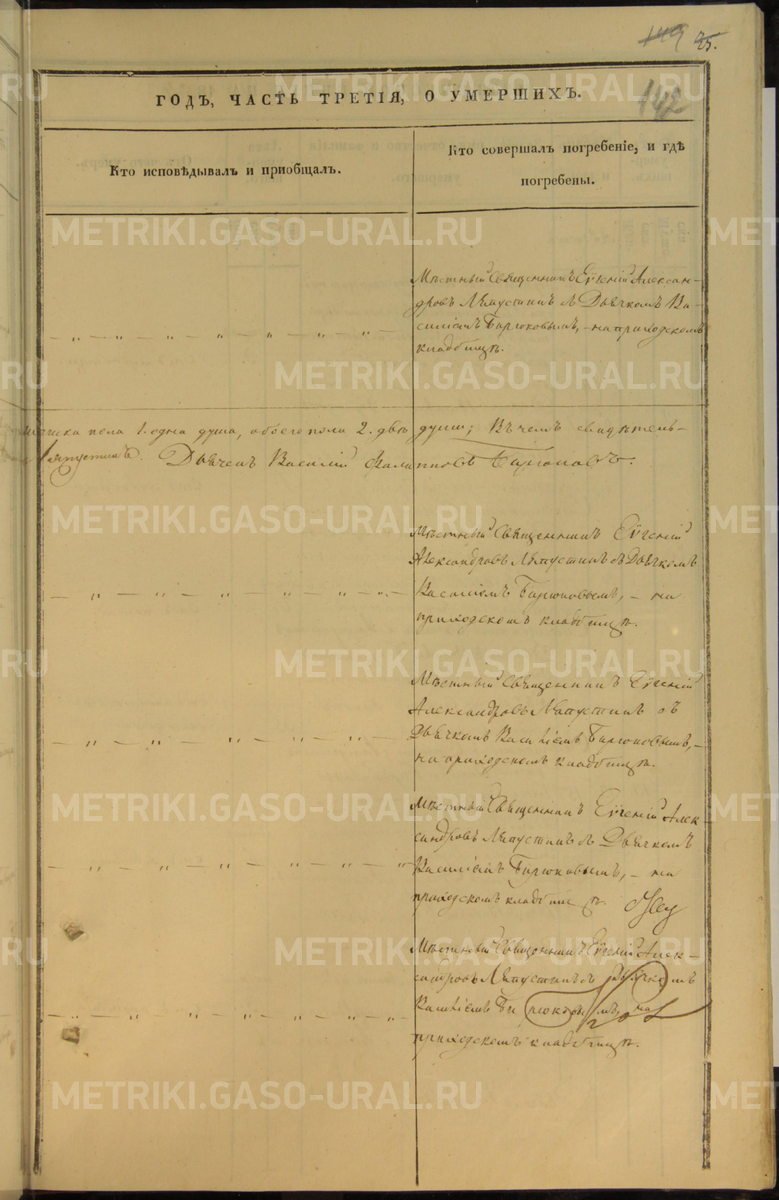 149 25.
142
ГОДЪ, ЧАСТЬ ТРЕТІЯ, О УМЕРШИХЪ.
Кто исповѣдывалъ и приобщалъ.
Кто совершалъ погребеніе, и гдѣ
погребены.
Мѣстный Священникъ Евгеній Алексан-
дровъ Ляпустинъ съ Дьячкомъ Ва-
силіемъ Бирюковымъ, – на приходскомъ
кладбищѣ.
женска пола 1. одна душа, обоего пола 2. двѣ души; Въ чемъ свидѣтель-
Ляпустинъ. Дьячекъ Василій Филипповъ Бирюковъ.
Мѣстный Священникъ Евгеній
Александровъ Ляпустинъ съ Дьячкомъ
Василіемъ Бирюковымъ, – на
приходскомъ кладбищѣ.
Мѣстный Священникъ Евгеній
Александровъ Ляпустинъ съ
Дьячкомъ Василіемъ Бирюковымъ, –
на приходскомъ кладбищѣ.
Мѣстный Священникъ Евгеній Алек-
сандровъ Ляпустинъ съ Дьячкомъ
Василіемъ Бирюковымъ, – на
приходскомъ кладбищѣ.
Мѣстный Священникъ Евгеній Алек-
сандровъ Ляпустинъ съ Дьячкомъ
Василіемъ Бирюковымъ, на
приходскомъ кладбищѣ.
METRIKI.GASO-URAL.RU